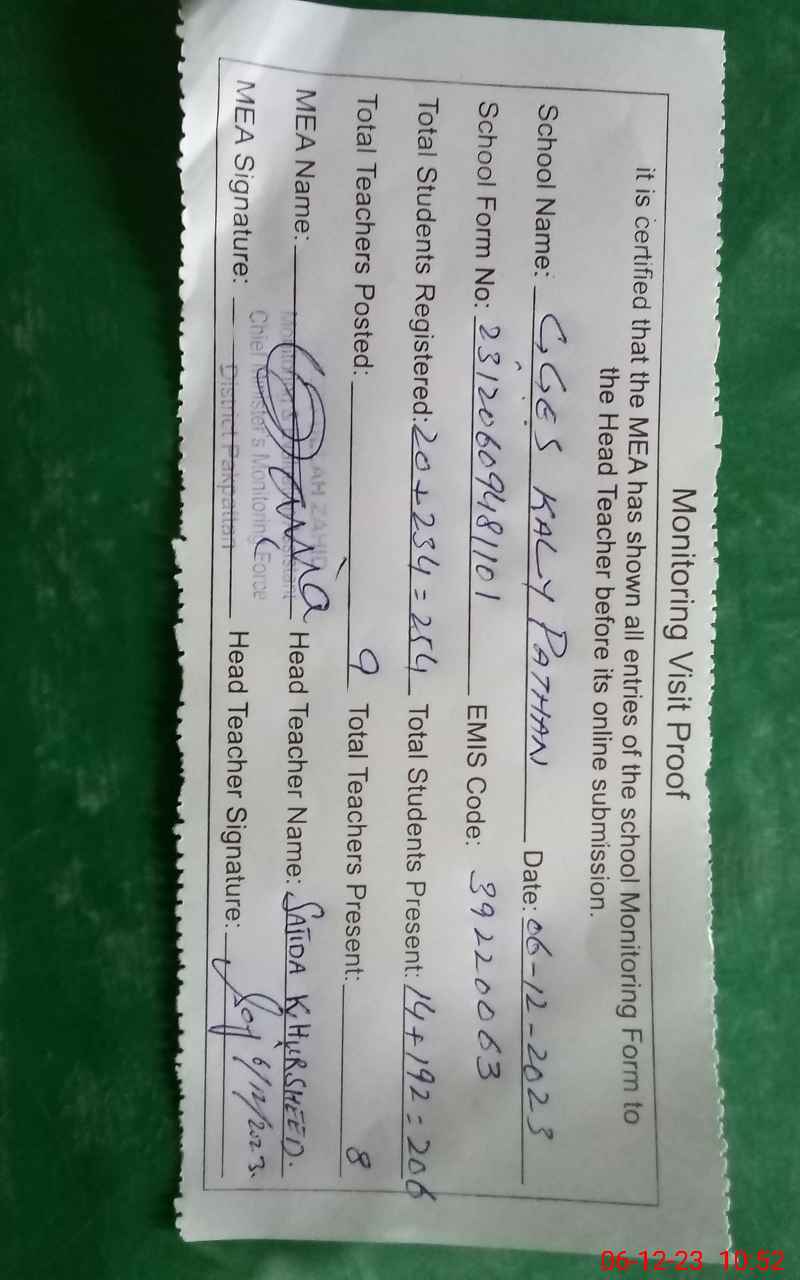 Monitoring Visit Proof
it is certified that the MEA has shown all entries of the school Monitoring Form to
the Head Teacher before its online submission.
School Name: G.GES KALY PATHAN Date: 06-12-2023
School Form No: 23120609481101 EMIS Code: 39220063
Total Students Registered: 20+234=254 Total Students Present: 14+192=206
Total Teachers Posted: 9 Total Teachers Present: 8
MEA Name: Head Teacher Name: SAJIDA KHURSHEED.
AH ZAHID
Chief Minister's Monitoring Force
District Pakpattan
MEA Signature: Head Teacher Signature: 6/12/2023.
06-12-23 10:52